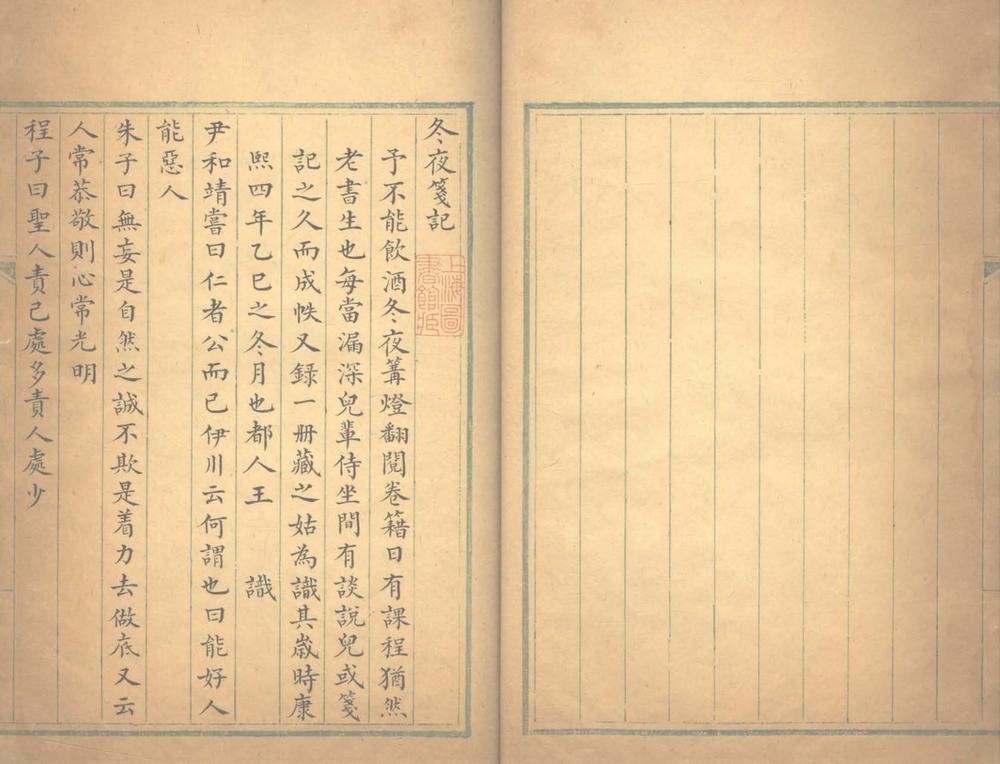 冬夜箋記
上海圖書館藏
予不能飲酒冬夜篝燈翻閱卷籍日有課程猶然
老書生也每當漏深兒輩侍坐間有談說兒或箋
記之久而成帙又録一冊藏之姑為識其嵗時康
熙四年乙巳之冬月也都人王　識
尹和靖嘗曰仁者公而已伊川云何謂也曰能好人
能惡人
朱子曰無妄是自然之誠不欺是着力去做底又云
人常恭敬則心常光明
程子曰聖人責己處多責人處少